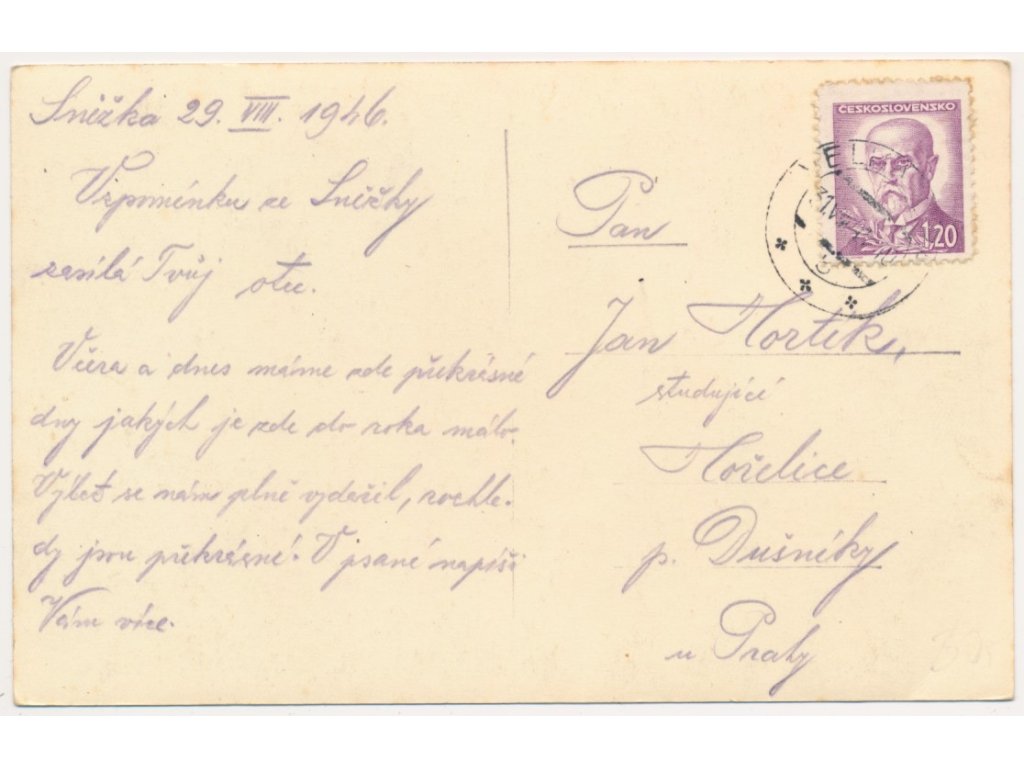 Sněžka 29. VIII. 1946.
Vzpomínku ze Sněžky
zasílá Tvůj otec.
Včera a dnes máme zde překrásné
dny jakých je zde do roka málo.
Výlet se nám plně vydařil, rozhle-
dy jsou překrásné. V psaní napíši
Vám více.
ČESKOSLOVENSKO
1,20
Pán
Jan Hortík,
studující
Hořelice
p. Dušníky
u Prahy